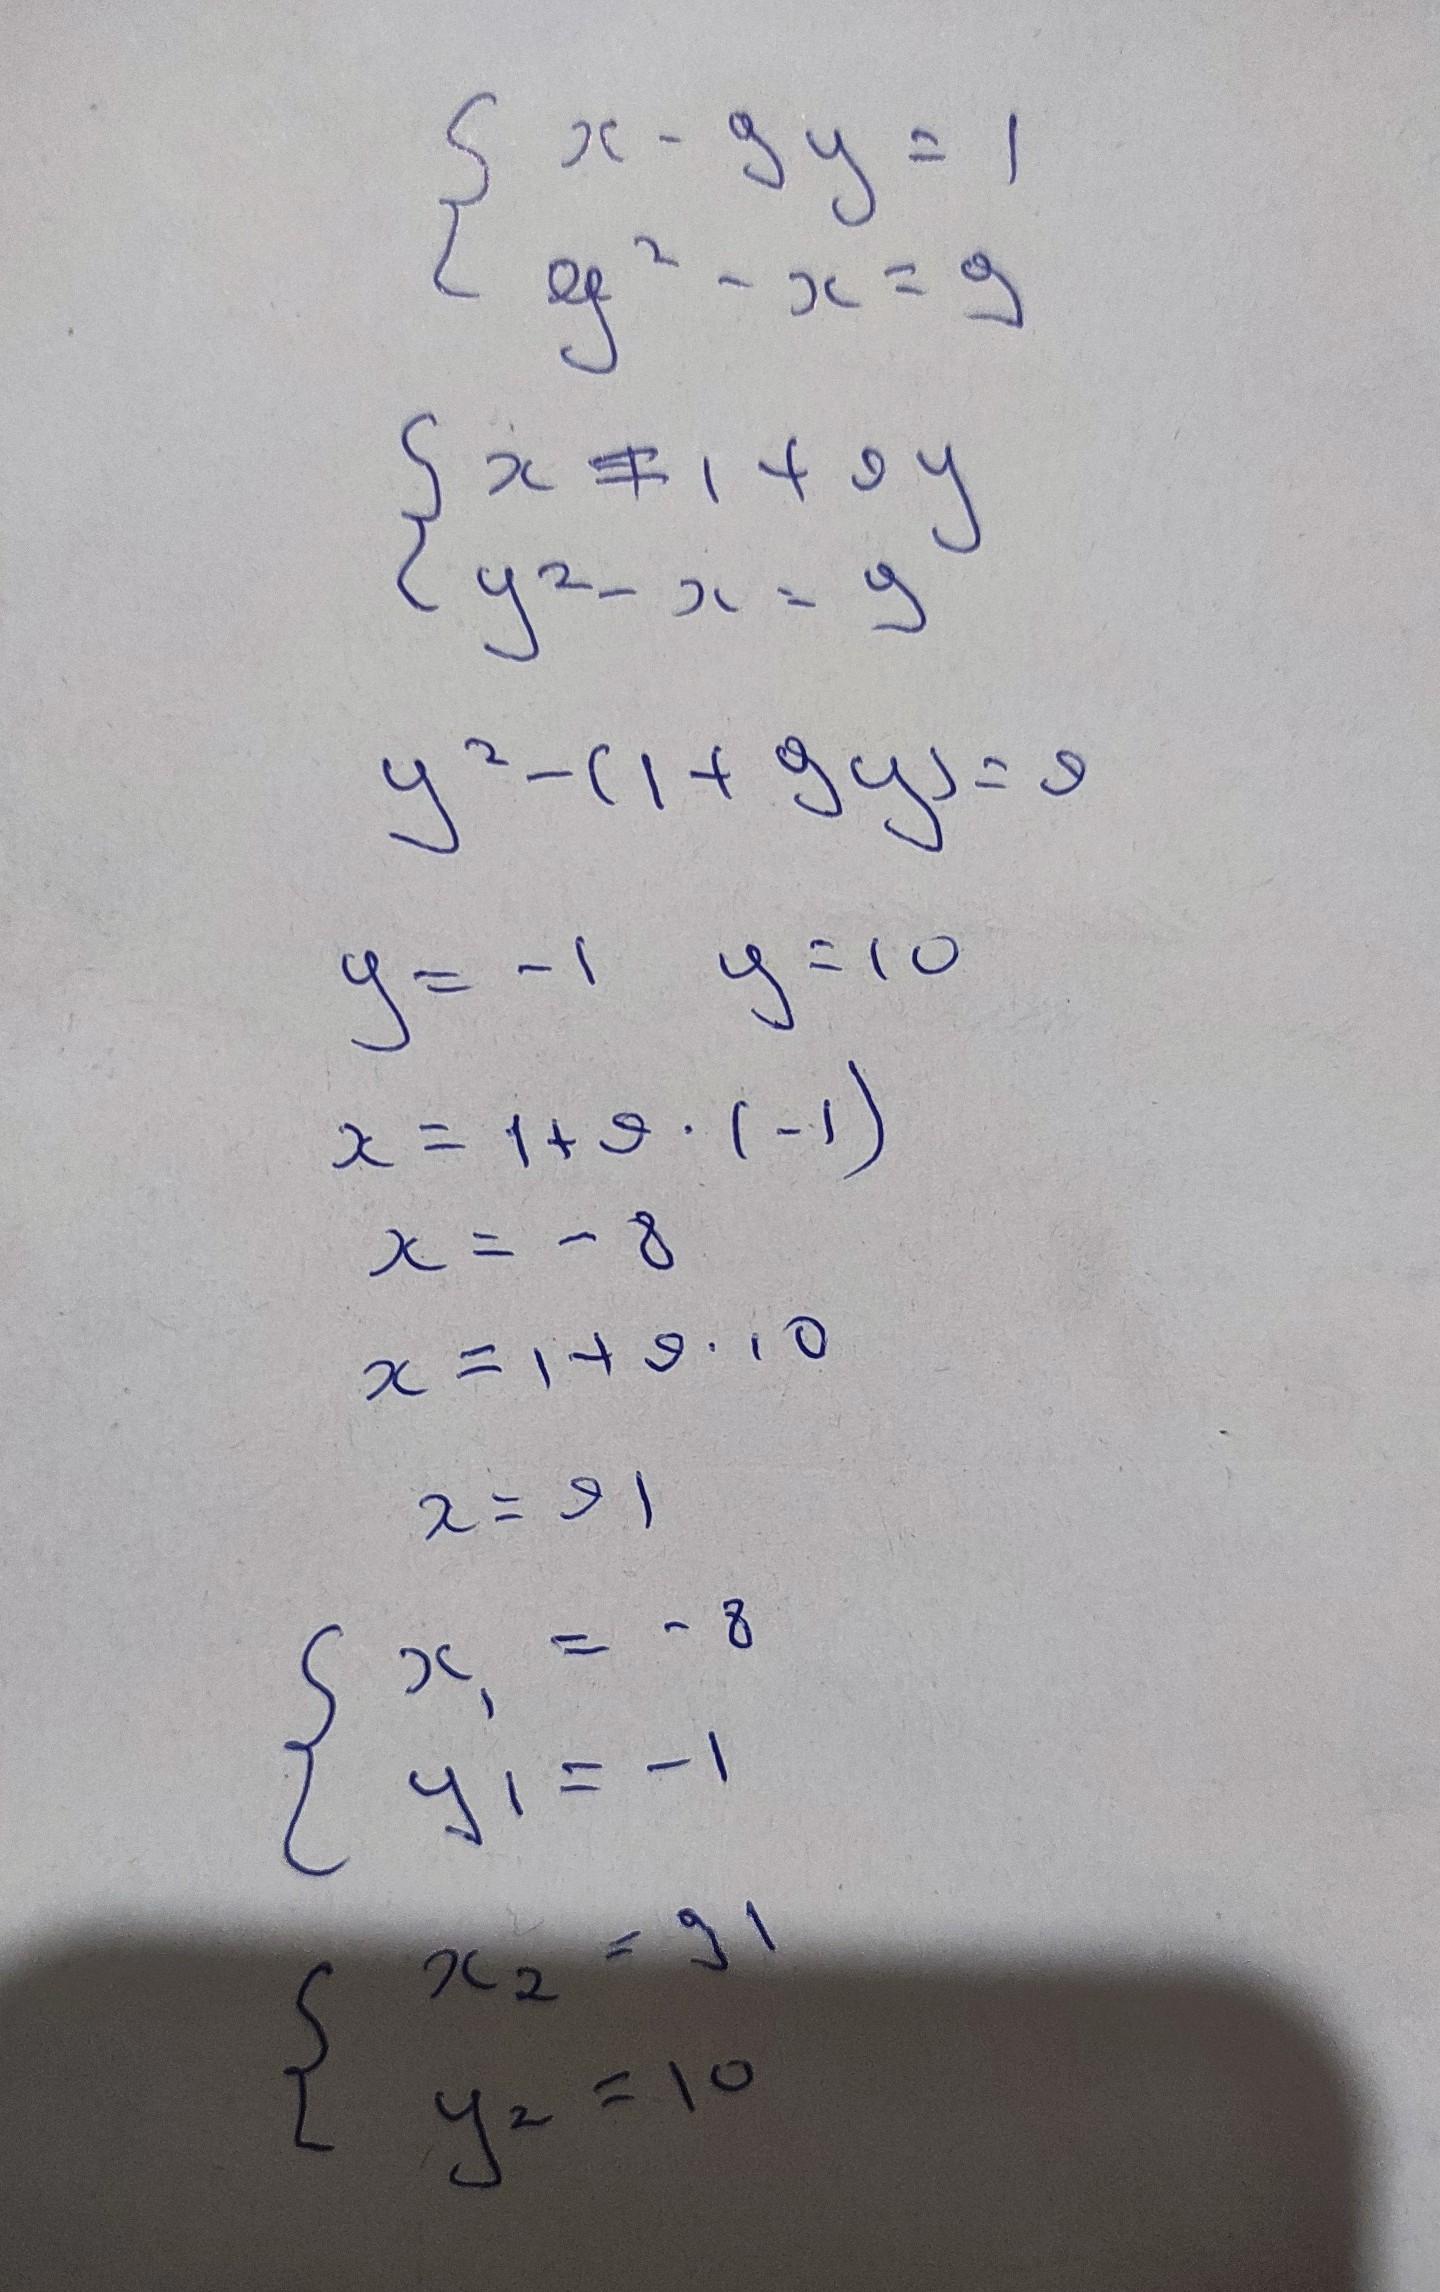 { x - 9y = 1
y² - x = 9
{ x = 1 + 9y
y² - x = 9
y² - (1 + 9y) = 9
y = -1 y = 10
x = 1 + 9 · (-1)
x = - 8
x = 1 + 9 · 10
x = 91
{ x₁ = - 8
y₁ = -1
{ x₂ = 91
y₂ = 10